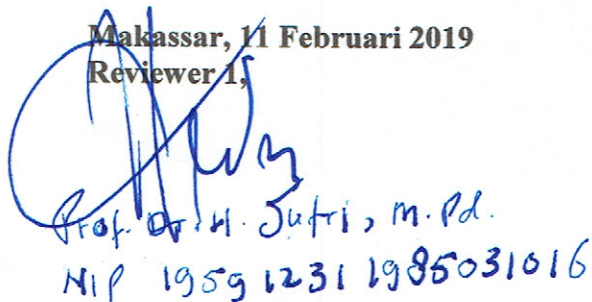 Makassar, 11 Februari 2019
Reviewer 1,
Prof. Dr. H. Jufri, M.Pd.
NIP 19591231 1985031016